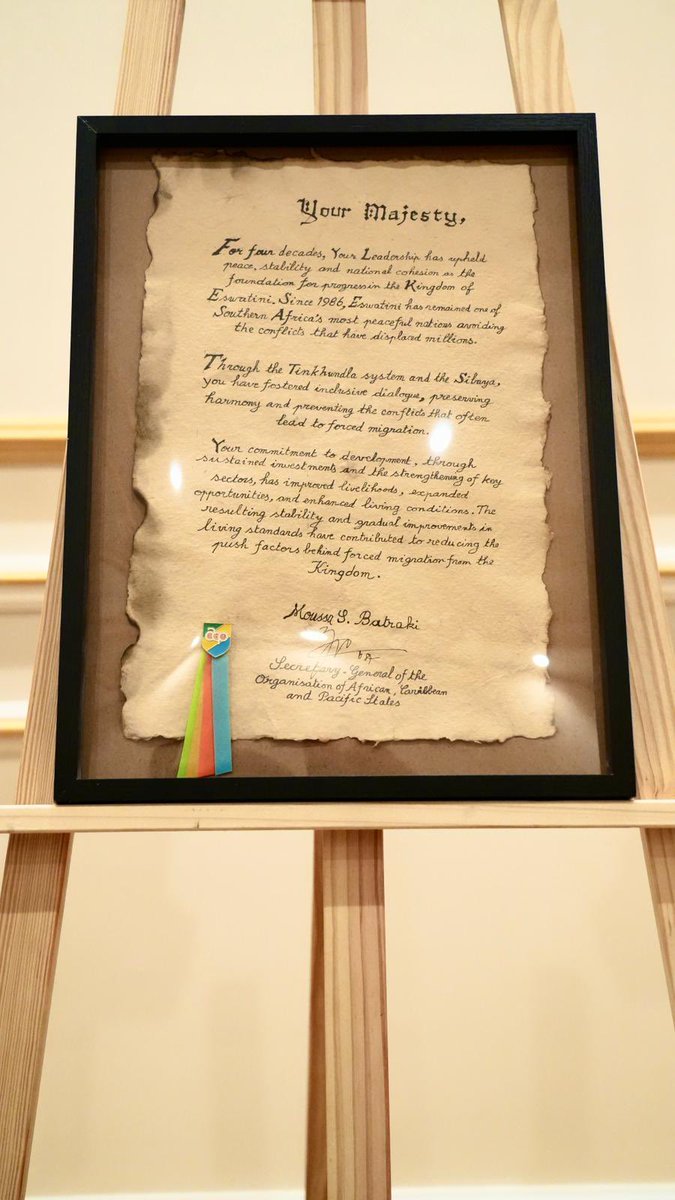 Your Majesty,
For four decades, Your Leadership has upheld
peace, stability and national cohesion as the
foundation for progress in the Kingdom of
Eswatini. Since 1986, Eswatini has remained one of
Southern Africa's most peaceful nations avoiding
the conflicts that have displaced millions.
Through the Tinkhundla system and the Sibaya,
you have fostered inclusive dialogue, preserving
harmony and preventing the conflicts that often
lead to forced migration.
Your commitment to development, through
sustained investments and the strengthening of key
sectors, has improved livelihoods, expanded
opportunities, and enhanced living conditions. The
resulting stability and gradual improvements in
living standards have contributed to reducing the
push factors behind forced migration from the
Kingdom.
Moussa S. Batraki
Secretary-General of the
Organisation of African, Caribbean
and Pacific States
acp